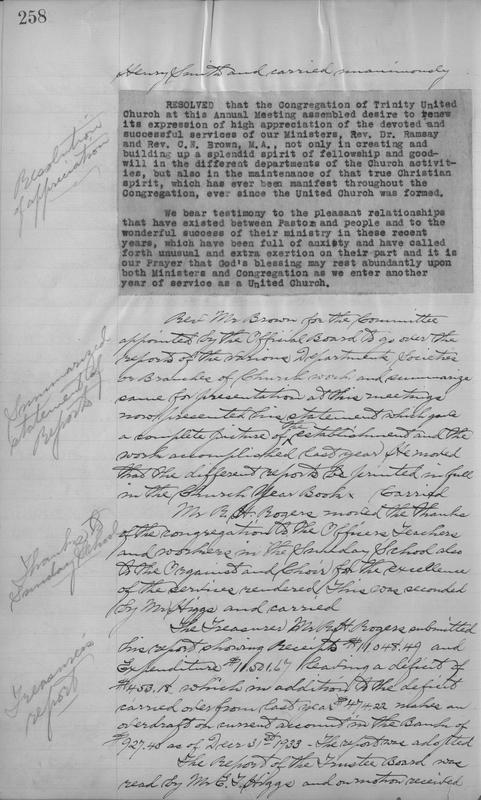 258
Henry Smith and carried unanimously
Resolution
of appreciation
RESOLVED that the Congregation of Trinity United
Church at this Annual Meeting assembled desire to renew
its expression of high appreciation of the devoted and
successful services of our Ministers, Rev. Dr. Ramsay
and Rev. C.N. Brown, M.A., not only in creating and
building up a splendid spirit of fellowship and good-
will in the different departments of the Church activit-
ies, but also in the maintenance of that true Christian
spirit, which has ever been manifest throughout the
Congregation, ever since the United Church was formed.
We bear testimony to the pleasant relationships
that have existed between Pastor and people and to the
wonderful success of their ministry in these recent
years, which have been full of anxiety and have called
forth unusual and extra exertion on their part and it is
our Prayer that God's blessing may rest abundantly upon
both Ministers and Congregation as we enter another
year of service as a United Church.
Summarized
statement of
Reports
Rev Mr Brown for the Committee
appointed by the Official Board to go over the
reports of the various Departments Societies
or Branches of Church work and summarize
same for presentation at this meeting
now presented this statement which gave
a complete picture of the establishment and the
work accomplished last year He moved
that the different reports be printed in full
in the Church Year Book. Carried
Thanks to
Sunday School
Mr R.H. Rogers moved the thanks
of the congregation to the Officers Teachers
and workers in the Sunday School also
to the Organist and Choir for the excellence
of the services rendered This was seconded
by Mr Higgs and carried
Treasurer's
report
The Treasurer Mr R.H. Rogers submitted
his report showing Receipts $11,048.49 and
Expenditure $11,501.67 leaving a deficit of
$453.18 which in addition to the deficit
carried over from last year $474.22 makes an
overdraft on current account in the Bank of
$927.40 as of Decr 31st 1933 - The report was adopted
The Report of the Trustee Board was
read by Mr E.T. Higgs and on motion received